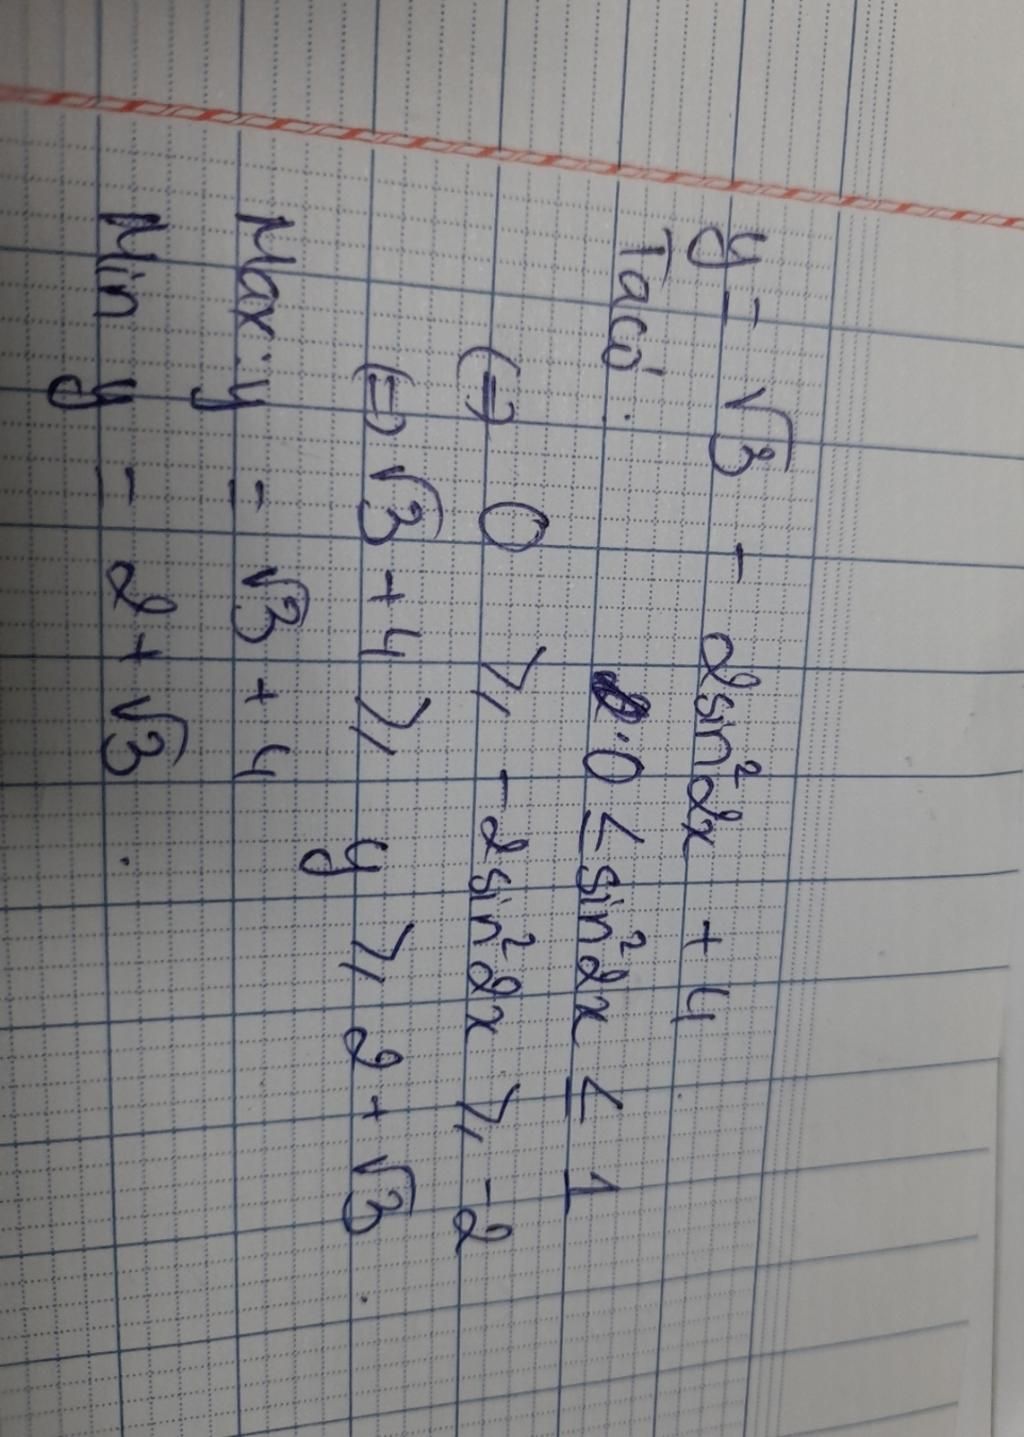 y = √3 - 2sin²2x + 4
Ta có: 0 ≤ sin²2x ≤ 1
(=) 0 ⩾ -2sin²2x ⩾ -2
(=) √3 + 4 ⩾ y ⩾ 2 + √3.
Max: y = √3 + 4
Min y = 2 + √3.